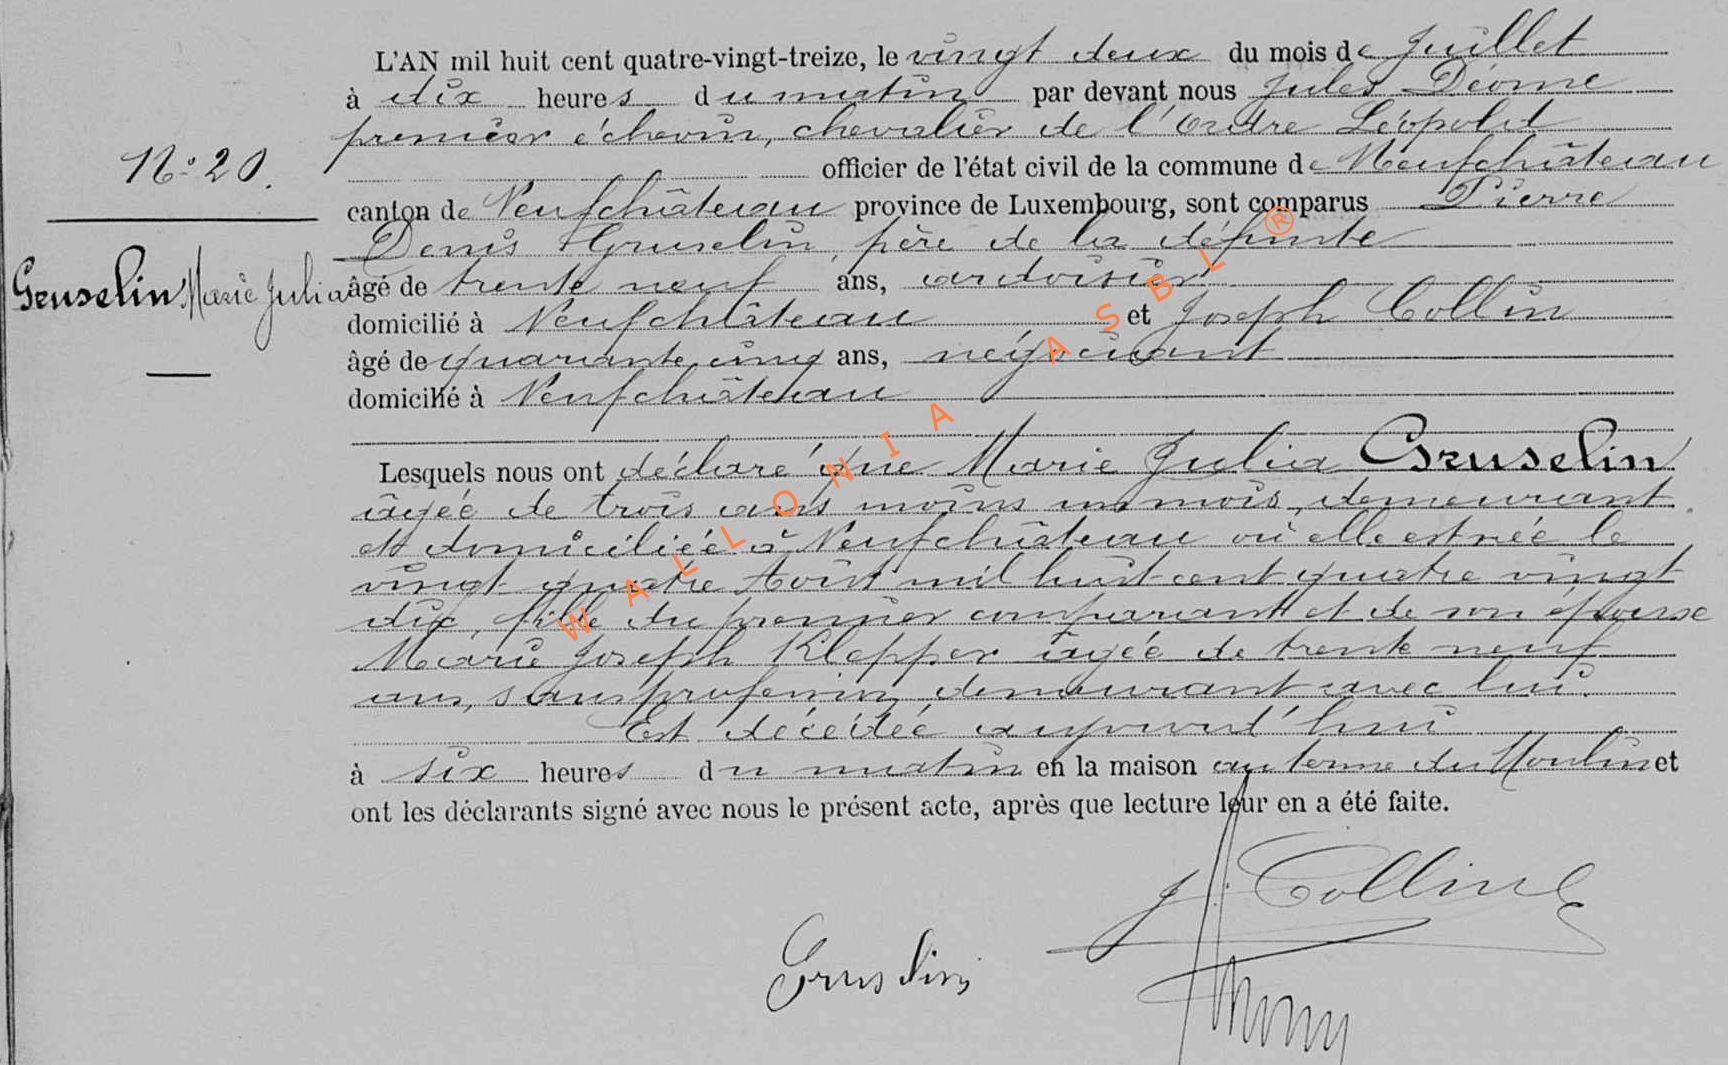 L'AN mil huit cent quatre-vingt-treize, le vingt deux du mois de Juillet
à dix heures du matin par devant nous Jules Déome
premier échevin, chevalier de l'Ordre Léopold
N° 20.
officier de l'état civil de la commune de Neufchâteau
canton de Neufchâteau province de Luxembourg, sont comparus Pierre
Denis Gruselin, père de la défunte
Gruselin Marie Julia
âgé de trente neuf ans, ardoisier
domicilié à Neufchâteau et Joseph Collin
âgé de quarante cinq ans, négociant
domicilié à Neufchâteau
Lesquels nous ont déclaré que Marie Julia Gruselin
âgée de trois ans moins un mois, demeurant
et domiciliée à Neufchâteau où elle est née le
vingt quatre Août mil huit cent quatre vingt
dix, fille du premier comparant et de son épouse
Marie Joseph Klepper âgée de trente neuf
ans, sans profession, demeurant avec lui.
Est décédée aujourd'hui
à six heures du matin en la maison au terme du Moulin et
ont les déclarants signé avec nous le présent acte, après que lecture leur en a été faite.
J. Collin
Gruslin
WALLONIA ASBL ®